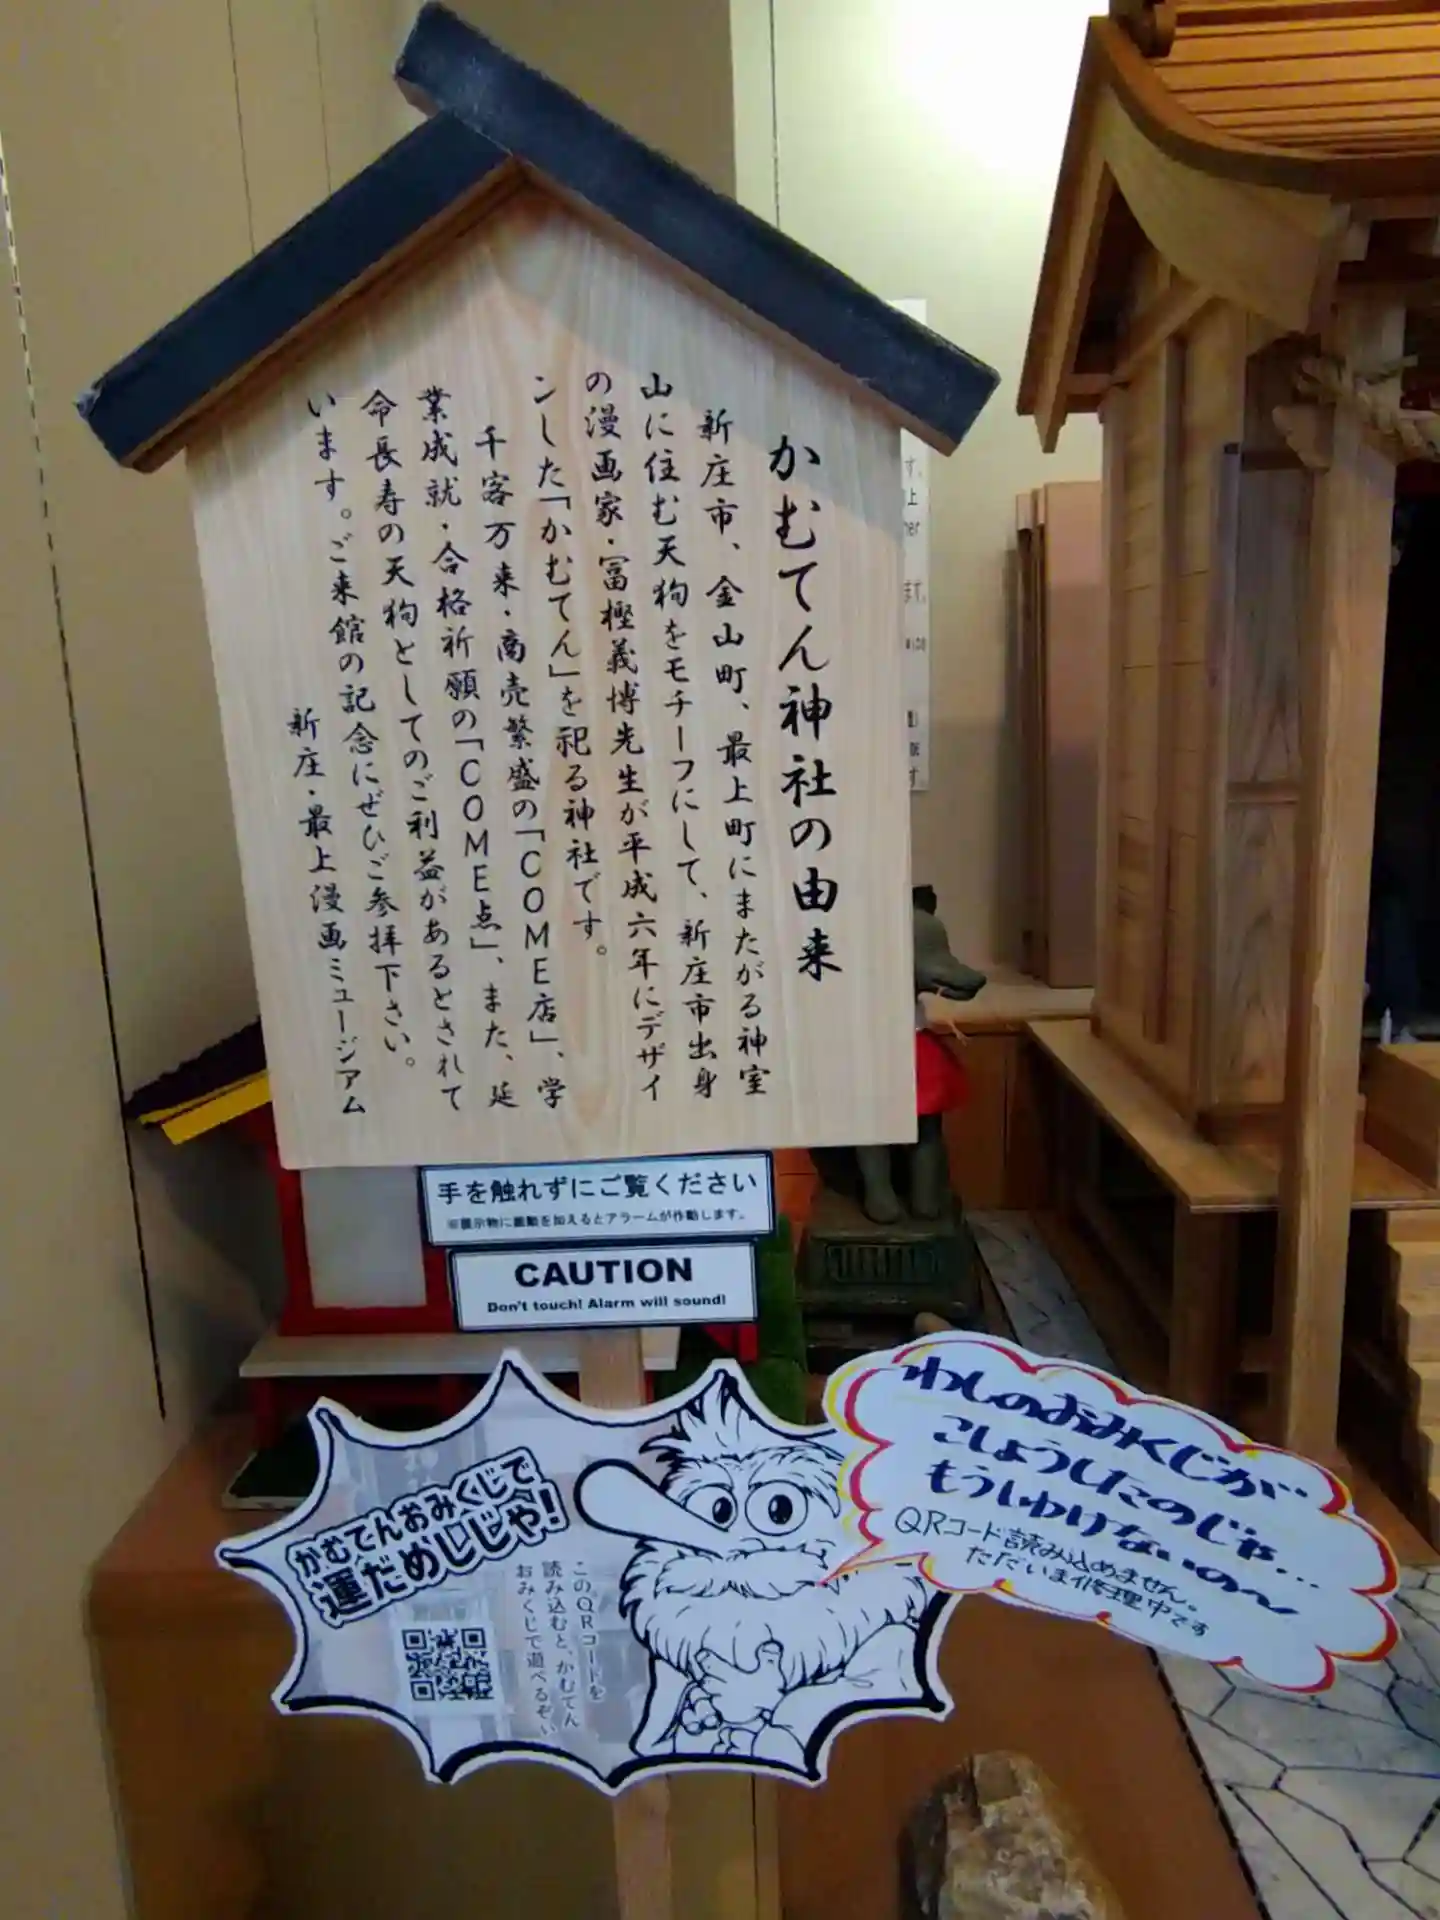 かむてん神社の由来
新庄市、金山町、最上町にまたがる神室
山に住む天狗をモチーフにして、新庄市出身
の漫画家・冨樫義博先生が平成六年にデザイ
ンした「かむてん」を祀る神社です。
千客万来・商売繁盛の「COME店」、学
業成就・合格祈願の「COME点」、また、延
命長寿の天狗としてのご利益があるとされて
います。ご来館の記念にぜひご参拝下さい。
新庄・最上漫画ミュージアム
手を触れずにご覧ください
※展示物に振動を加えるとアラームが作動します。
CAUTION
Don't touch! Alarm will sound!
かむてんおみくじで
運だめしじゃ!
このQRコードを
読み込むと、かむてん
おみくじで遊べるぞい
わしのおみくじが
こしょうしたのじゃ…
もうしわけないの〜
QRコード読み込めません。
ただいま修理中です